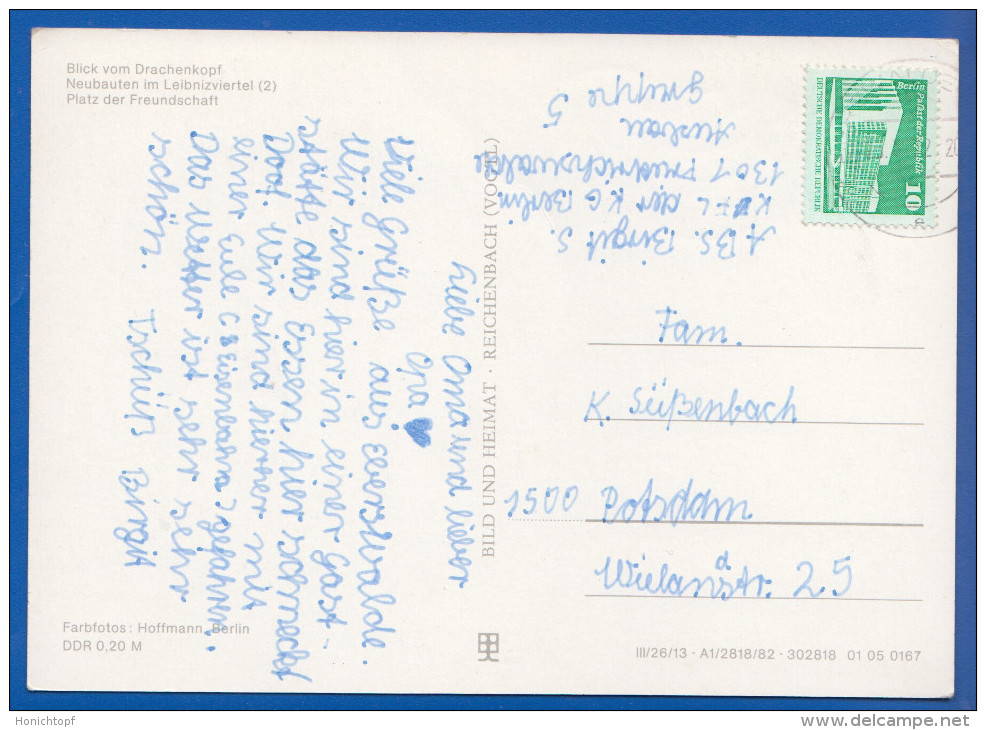 Blick vom Drachenkopf
Neubauten im Leibnizviertel (2)
Platz der Freundschaft
Liebe Oma und lieber
Opa ♥
Viele Grüße aus Eberswalde.
Wir sind hier in einer Gast-
stätte das Essen hier schmeckt
Doof. Wir sind hierher mit
einer Eule (Eisenbahn) gefahren.
Das Wetter ist sehr sehr
schön. Tschüß Birgit
Farbfotos: Hoffmann, Berlin
DDR 0,20 M
BILD UND HEIMAT · REICHENBACH (VOGTL)
ABS. Birgit S.
KFL der KG Berlin
1307 Friedrichswalde
gruppe 5
Berlin Palast der Republik
DEUTSCHE DEMOKRATISCHE REPUBLIK
10
Fam.
K. Süßenbach
1500 Potsdam
Wielandstr. 25
III/26/13 · A1/2818/82 · 302818 01 05 0167
Honichtopf
www.delcampe.net